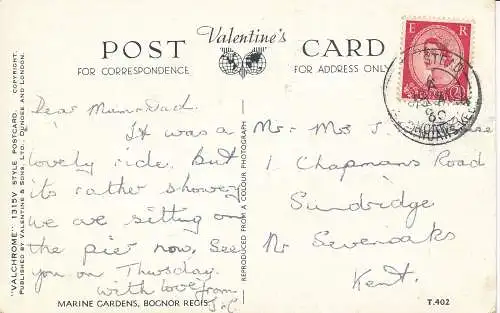 Valentine's
POST CARD
FOR CORRESPONDENCE
FOR ADDRESS ONLY
E R
Dear Mum & Dad.
It was a
lovely ride, but
it's rather showery
we are sitting on
the pier now. See
you on Thursday.
with love from
Mr & Mrs
1 Chapmans Road
Sundridge
Nr Sevenoaks
Kent.
"VALCHROME" 1315V STYLE POSTCARD. COPYRIGHT.
PUBLISHED BY VALENTINE & SONS, LTD., DUNDEE AND LONDON.
REPRODUCED FROM A COLOUR PHOTOGRAPH
MARINE GARDENS, BOGNOR REGIS.
T.402